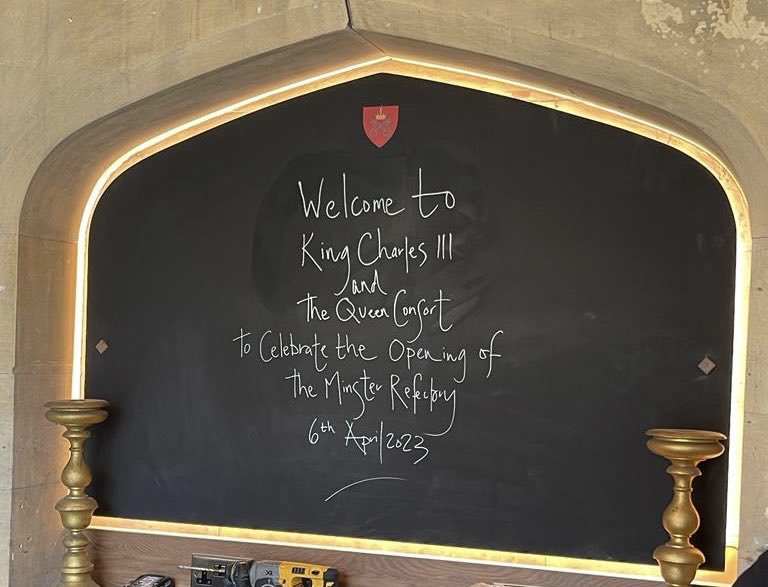 Welcome to
King Charles III
and
The Queen Consort
To Celebrate the Opening of
The Minster Refectory
6th April 2023
XR